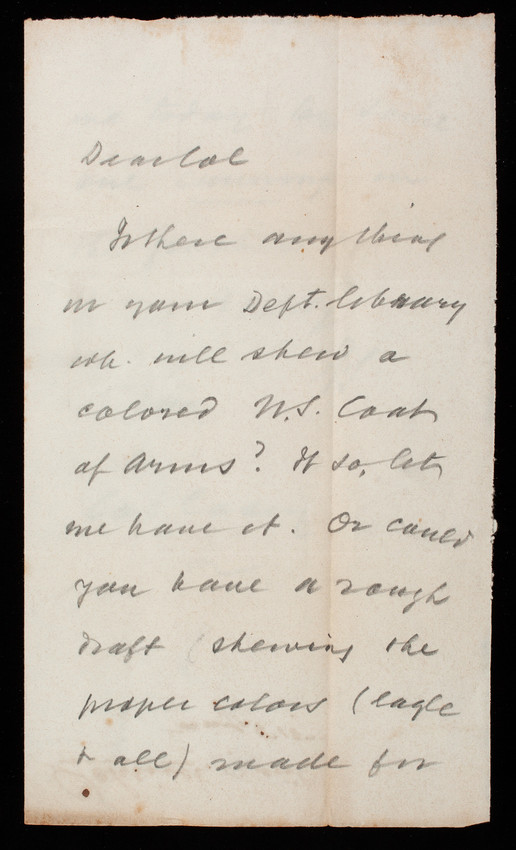 Dear Col
Is there any thing
in your Dept. library
wh. will shew a
colored U.S. Coat
of Arms? If so, let
me have it. Or could
you have a rough
draft (shewing the
proper colors (eagle
& all) made for